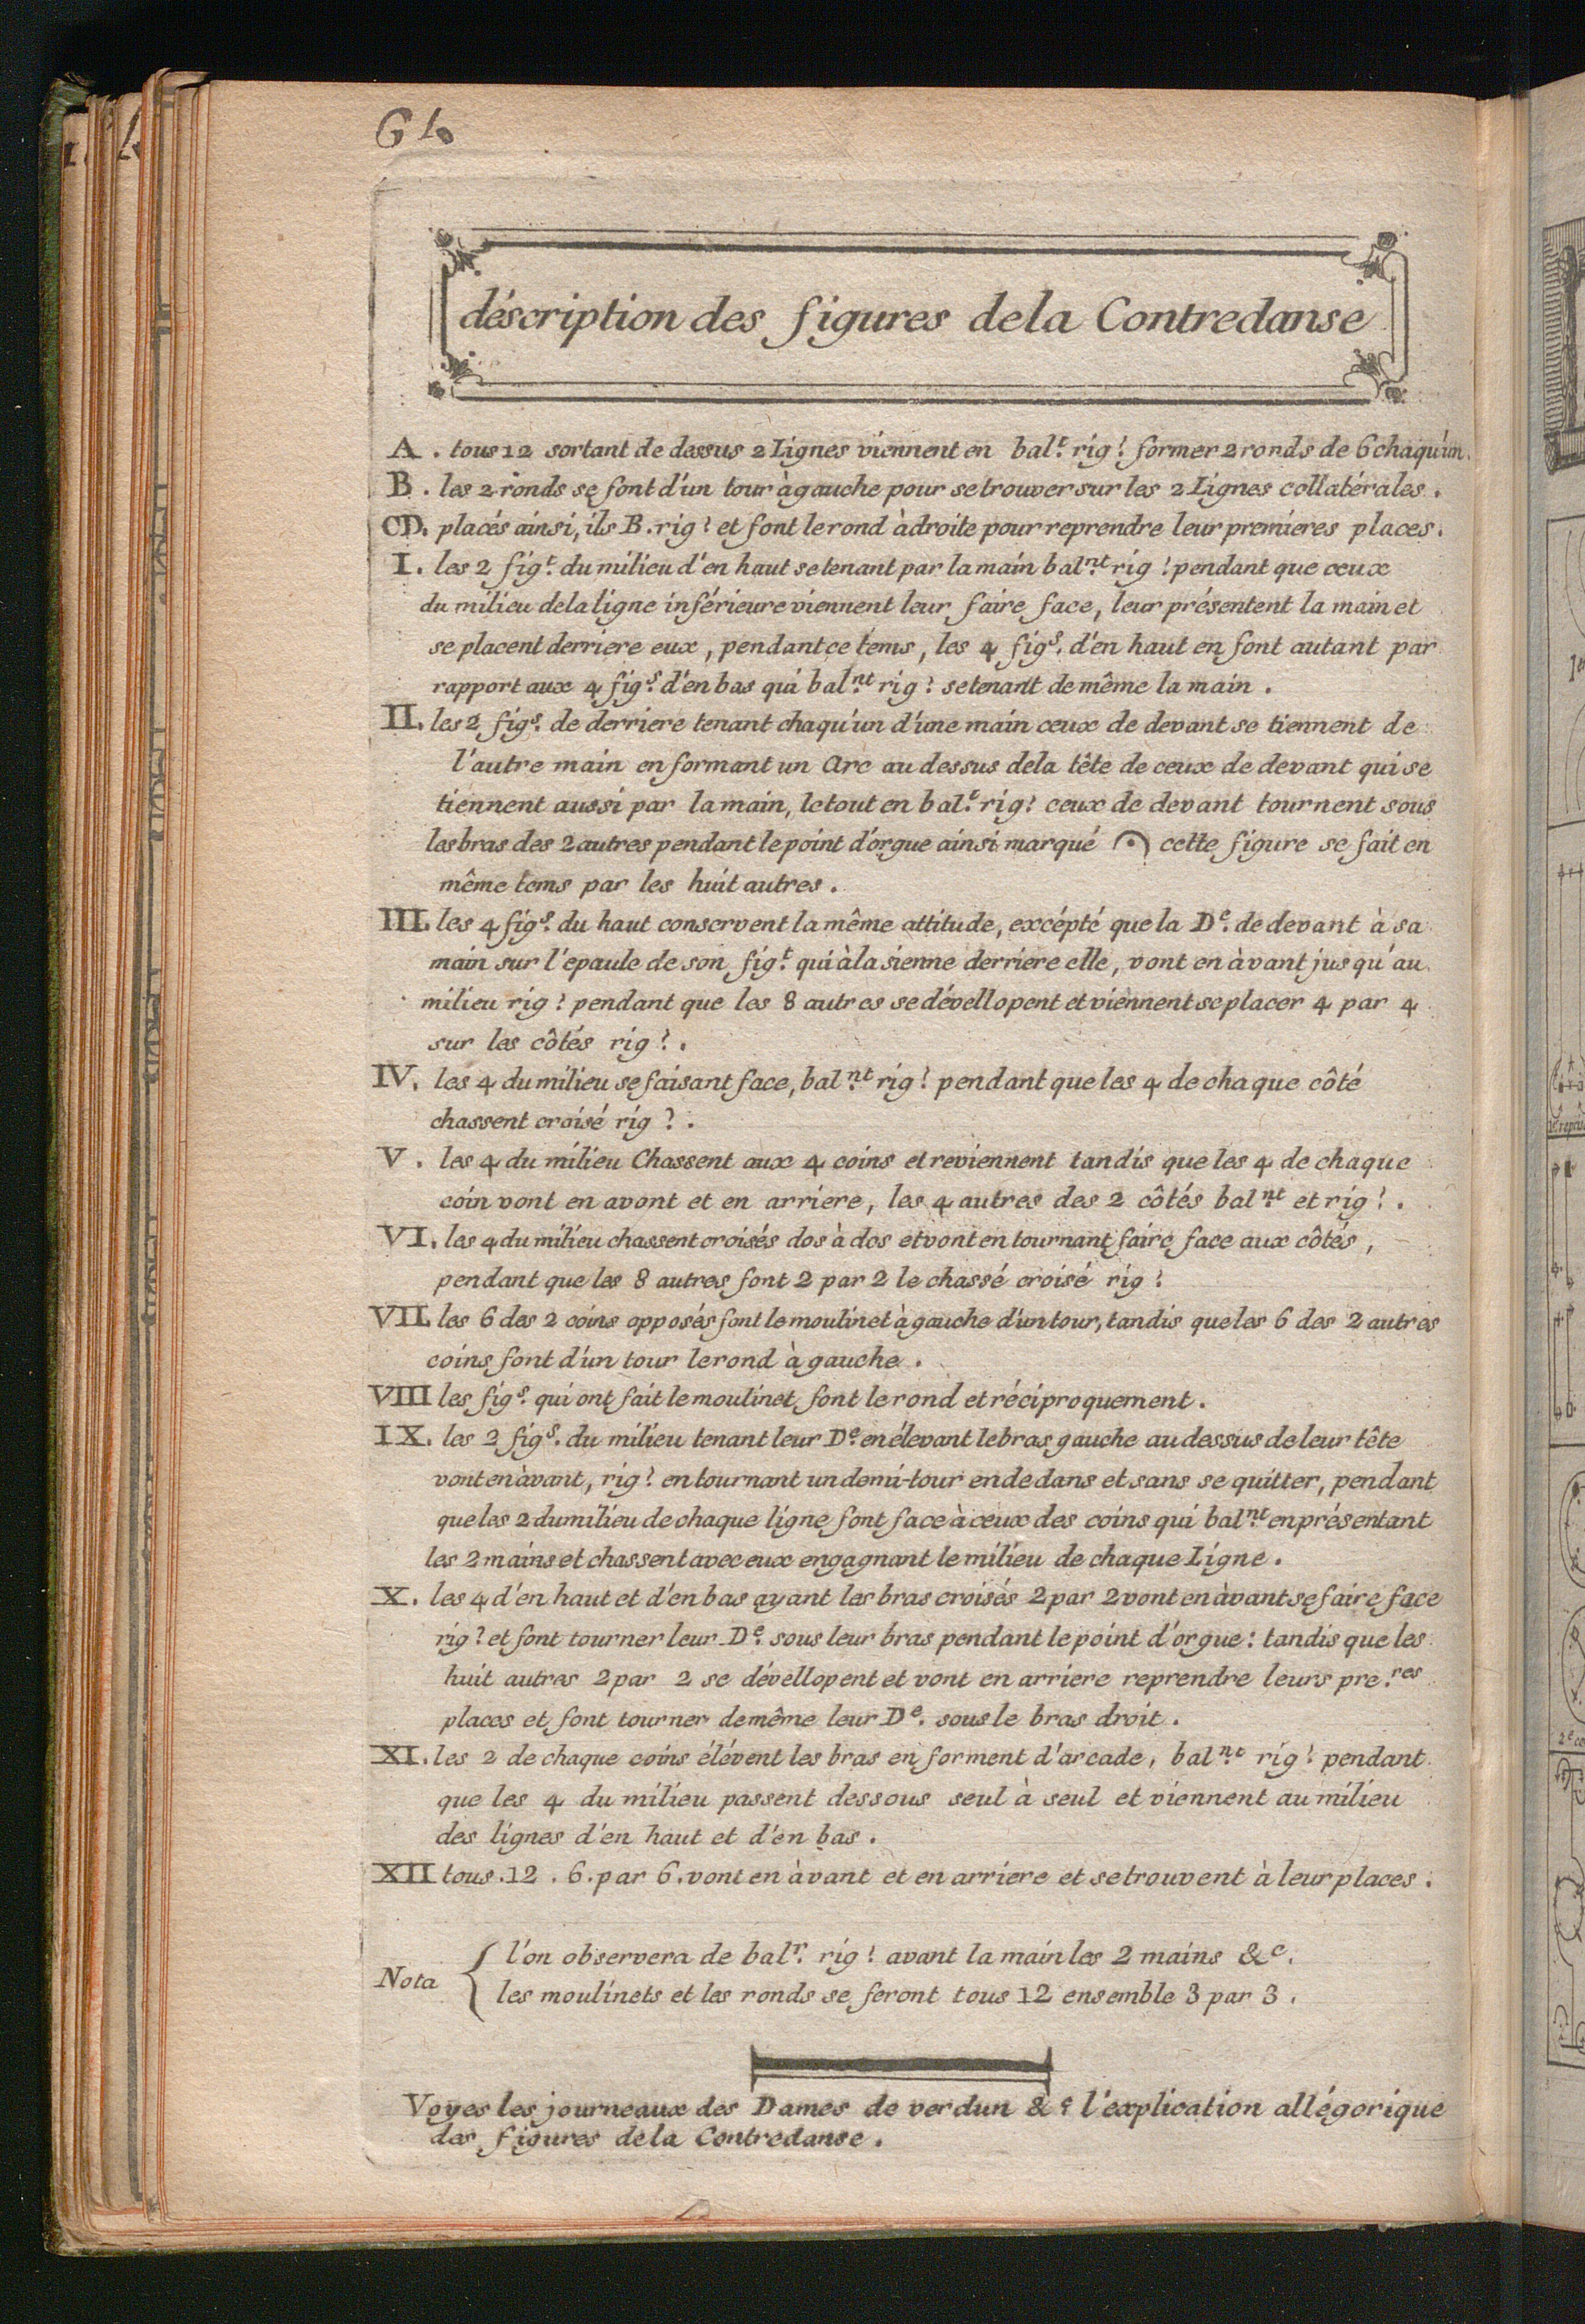 déscription des figures de la Contredanse
A. tous 12 sortant de dessus 2 Lignes viennent en bal.t rig! former 2 ronds de 6 chaqu'un.
B. les 2 ronds se font d'un tour à gauche pour se trouver sur les 2 Lignes collatérales.
CD. placés ainsi, ils B. rig! et font le rond à droite pour reprendre leur premieres places.
I. les 2 fig.t du milieu d'en haut se tenant par la main bal.nt rig! pendant que ceux
du milieu de la ligne inférieure viennent leur faire face, leur présentent la main et
se placent derriere eux, pendant ce tems, les 4 fig.s d'en haut en font autant par
rapport aux 4 fig.s d'en bas qui bal.nt rig! se tenant de même la main.
II. les 2 fig.s de derriere tenant chaqu'un d'une main ceux de devant se tiennent de
l'autre main en formant un Arc au dessus de la tête de ceux de devant qui se
tiennent aussi par la main, le tout en bal.t rig! ceux de devant tournent sous
les bras des 2 autres pendant le point d'orgue ainsi marqué 𝄐 cette figure se fait en
même tems par les huit autres.
III. les 4 fig.s du haut conservent la même attitude, excépté que la D.e de devant à sa
main sur l'epaule de son fig.t qui à la sienne derriere elle, vont en àvant jusqu'au
milieu rig! pendant que les 8 autres se dévellopent et viennent se placer 4 par 4
sur les côtés rig!.
IV. les 4 du milieu se faisant face, bal.nt rig! pendant que les 4 de chaque côté
chassent croisé rig!.
V. les 4 du milieu Chassent aux 4 coins et reviennent tandis que les 4 de chaque
coin vont en avont et en arriere, les 4 autres des 2 côtés bal.nt et rig!.
VI. les 4 du milieu chassent croisés dos à dos et vont en tournant faire face aux côtés,
pendant que les 8 autres font 2 par 2 le chassé croisé rig!
VII. les 6 des 2 coins opposés font le moulinet à gauche d'un tour, tandis que les 6 des 2 autres
coins font d'un tour le rond à gauche.
VIII les fig.s qui ont fait le moulinet font le rond et réciproquement.
IX. les 2 fig.s du milieu tenant leur D.e en élevant le bras gauche au dessus de leur tête
vont en àvant, rig! en tournant un demi-tour en dedans et sans se quitter, pendant
que les 2 du milieu de chaque ligne font face à ceux des coins qui bal.nt en présentant
les 2 mains et chassent avec eux en gagnant le milieu de chaque Ligne.
X. les 4 d'en haut et d'en bas ayant les bras croisés 2 par 2 vont en àvant se faire face
rig! et font tourner leur D.e sous leur bras pendant le point d'orgue: tandis que les
huit autres 2 par 2 se dévellopent et vont en arriere reprendre leurs pre.res
places et font tourner de même leur D.e sous le bras droit.
XI. les 2 de chaque coins élévent les bras en forment d'arcade, bal.nt rig! pendant
que les 4 du milieu passent dessous seul à seul et viennent au milieu
des lignes d'en haut et d'en bas.
XII tous. 12. 6. par 6. vont en àvant et en arriere et se trouvent à leur places.
Nota { l'on observera de bal.r rig! avant la main les 2 mains &c.
les moulinets et les ronds se feront tous 12 ensemble 3 par 3.
Voyes les journeaux des Dames de verdun &c l'explication allégorique
des figures de la Contredanse.